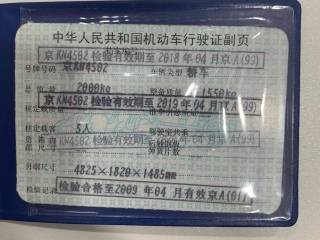 中华人民共和国机动车行驶证副页
京KN4502 检验有效期至2018年04月京A(99)
号牌号码 京KN4502 车辆类型 轿车
总质量 2000kg 整备质量 1550kg
京KN4502 检验有效期至2019年04月京A(99)
核定载客 5人 驾驶室共乘
KN4502 检验有效期至 年04月京A(99)
外廓尺寸 4825×1820×1485mm
检验记录 检验合格至2009年04月有效京A(01)